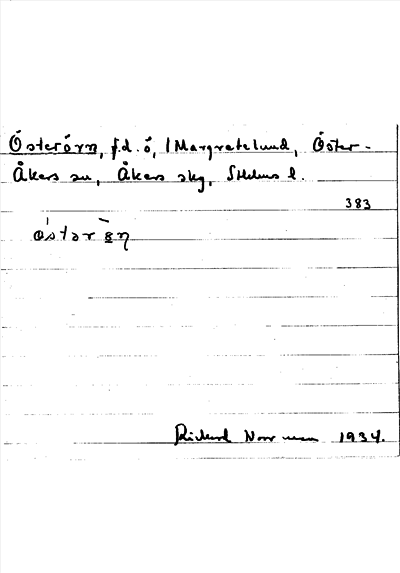 Österörn, f.d. ö, /Margretelund, Öster-
Åkers sn, Åkers skg, Sthlms l.
383
östər
Rickard Norrman 1934.